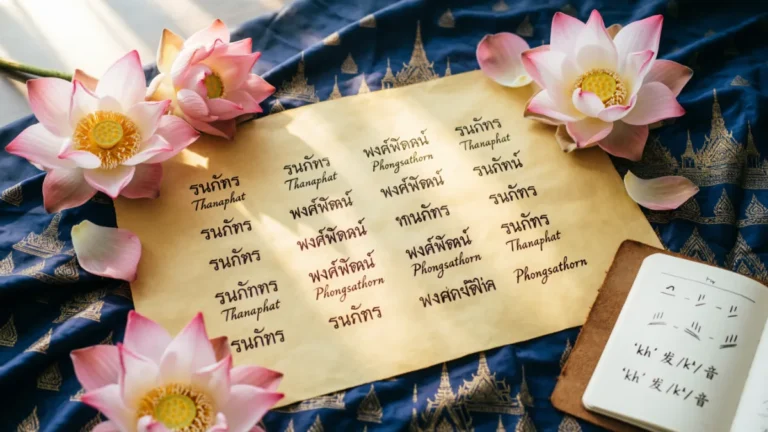 รนภัทร
Thanaphat
รนภัทร
รนภัทร
Thanaphat
รนภัทร
รนภัทร
Thanaphat
พงศ์พัฒน์
พงศ์พัฒน์
พงศ์พัฒน์
Phongsathorn
รนภัทร
พงศ์พัฒน์
Phongsathorn
พงศ์พัฒน์
พงศ์พัฒน์
Phongsathorn
รนภัทร
Thanaphat
รนภัทน์
รนภัทร
รนภัทร
Thanaphat
Phongsathorn
'kh' 发 /k'/音
'kh' 发 /k'/音